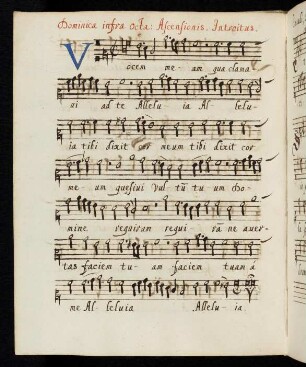 Dominica infra octa: Ascensionis. Introitus.
Vocem me - am qua clama
vi ad te Allelu - ia Al - lelu -
ia tibi dixit cor meum tibi dixit cor
me - um quesivi Vul - tū tu um Do -
mine requiram requi - ra ne aver -
tas faciem tu - am faciem tuam á
me Al - leluia Allelu - ia